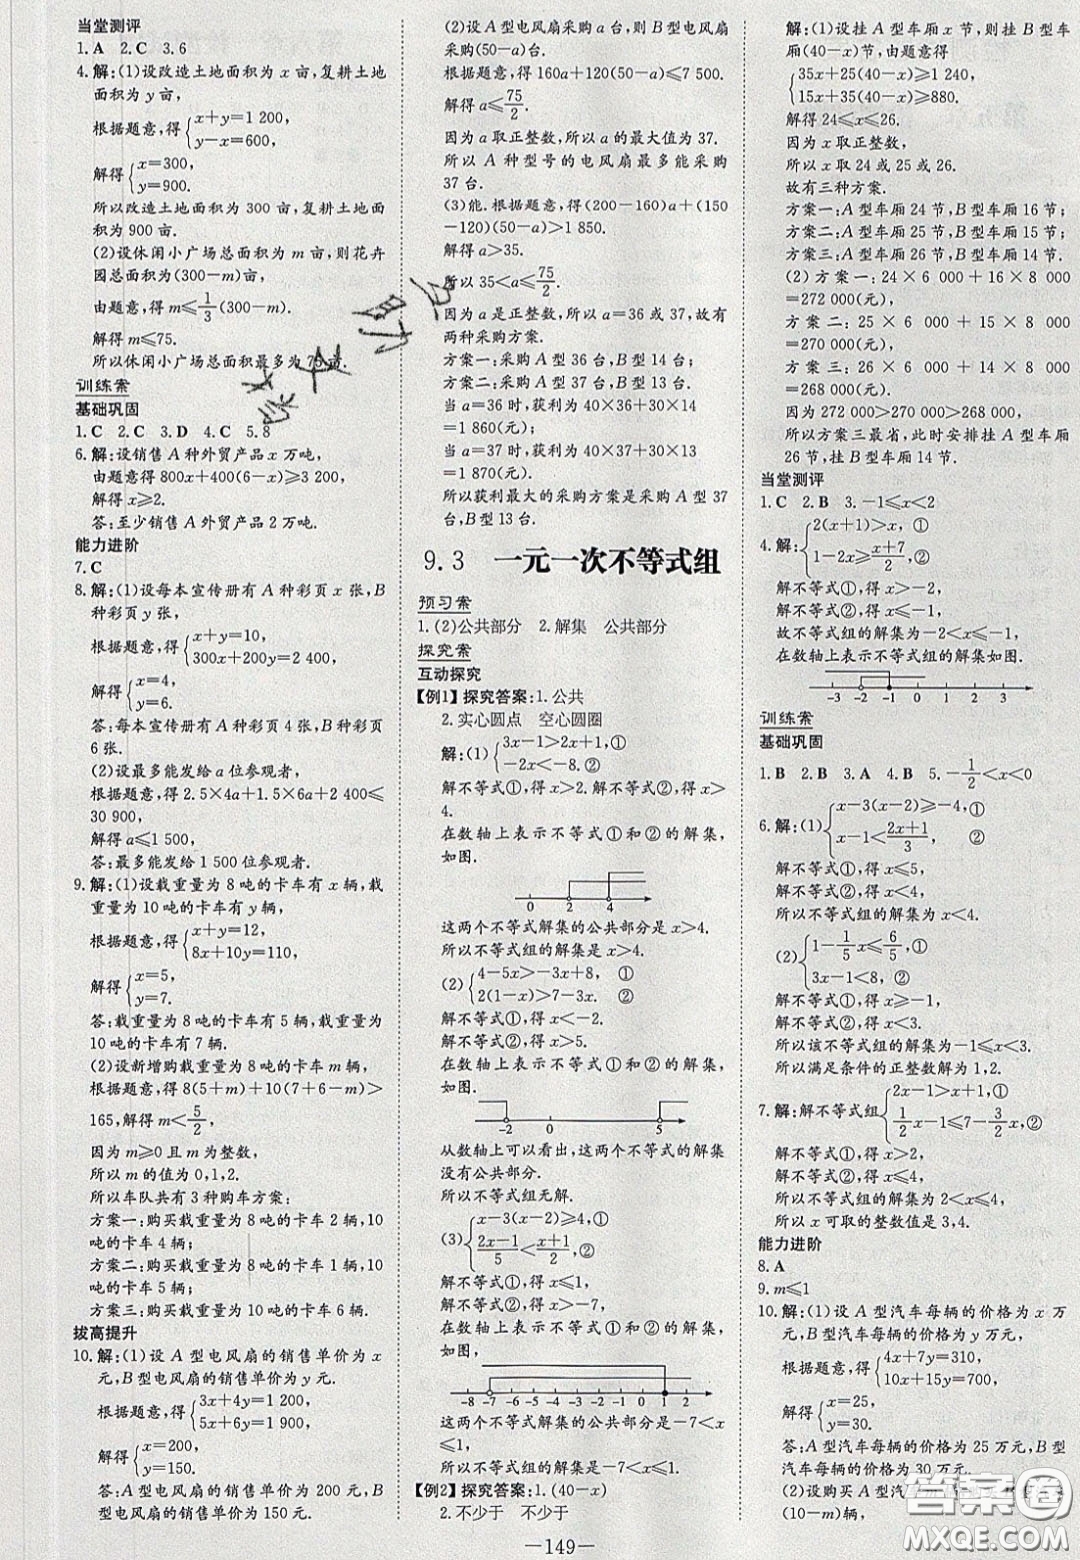 当堂测评
1.A 2.C 3.6
4.解:(1)设改造土地面积为x亩,复耕土地
面积为y亩,
根据题意,得{x+y=1 200,
y-x=600.
解得{x=300,
y=900.
所以改造土地面积为300亩,复耕土地
面积为900亩.
(2)设休闲小广场总面积为m亩,则花卉
园总面积为(300-m)亩,
由题意,得m≤1/3(300-m),
解得m≤75.
所以休闲小广场总面积最多为75亩.
训练案
基础巩固
1.C 2.C 3.D 4.C 5.8
6.解:设销售A种外贸产品x万吨,
由题意得800x+400(6-x)≥3 200,
解得x≥2.
答:至少销售A外贸产品2万吨.
能力进阶
7.C
8.解:(1)设每本宣传册有A种彩页x张,B
种彩页y张,
根据题意,得{x+y=10,
300x+200y=2 400,
解得{x=4,
y=6.
答:每本宣传册有A种彩页4张,B种彩页
6张.
(2)设最多能发给a位参观者,
根据题意,得2.5×4a+1.5×6a+2 400≤
30 900,
解得a≤1 500,
答:最多能发给1 500位参观者.
9.解:(1)设载重量为8吨的卡车有x辆,载
重量为10吨的卡车有y辆,
根据题意,得{x+y=12,
8x+10y=110,
解得{x=5,
y=7.
答:载重量为8吨的卡车有5辆,载重量为
10吨的卡车有7辆.
(2)设新增购载重量为8吨的卡车m辆,
根据题意,得8(5+m)+10(7+6-m)>
165,解得m<5/2,
因为m≥0且m为整数,
所以m的值为0,1,2.
所以车队共有3种购车方案:
方案一:购买载重量为8吨的卡车2辆,10
吨的卡车4辆;
方案二:购买载重量为8吨的卡车1辆,10
吨的卡车5辆;
方案三:购买载重量为10吨的卡车6辆.
拔高提升
10.解:(1)设A型电风扇的销售单价为x
元,B型电风扇的销售单价为y元.
根据题意,得{3x+4y=1 200,
5x+6y=1 900,
解得{x=200,
y=150.
答:A型电风扇的销售单价为200元,B
型电风扇的销售单价为150元.
(2)设A型电风扇采购a台,则B型电风扇
采购(50-a)台.
根据题意,得160a+120(50-a)≤7 500.
解得a≤75/2.
因为a取正整数,所以a的最大值为37.
所以A种型号的电风扇最多能采购
37台.
(3)能.根据题意,得(200-160)a+(150
-120)(50-a)>1 850.
解得a>35.
所以35<a≤75/2.
因为a是正整数,所以a=36或37,故有
两种采购方案.
方案一:采购A型36台,B型14台;
方案二:采购A型37台,B型13台;
当a=36时,获利为40×36+30×14
=1 860(元);
当a=37时,获利为40×37+30×13
=1 870(元).
所以获利最大的采购方案是采购A型37
台,B型13台.
9.3 一元一次不等式组
预习案
1.(2)公共部分 2.解集 公共部分
探究案
互动探究
【例1】探究答案:1.公共
2.实心圆点 空心圆圈
解:(1){3x-1>2x+1,①
-2x<-8.②
解不等式①,得x>2.解不等式②,得x>
4.
在数轴上表示不等式①和②的解集,
如图.
0 2 4
这两个不等式解集的公共部分是x>4.
所以不等式组的解集是x>4.
(2){4-5x>-3x+8, ①
2(1-x)>7-3x. ②
解不等式①,得x<-2.
解不等式②,得x>5.
在数轴上表示不等式①和②的解集,
如图.
-2 0 5
从数轴上可以看出,这两个不等式解集
没有公共部分.
所以不等式组无解.
(3){x-3(x-2)≥4,①
2x-1/5<x+1/2.②
解不等式①,得x≤1.
解不等式②,得x>-7,
在数轴上表示不等式①和②的解集,
如图.
-8 -7 -6 -5 -4 -3 -2 -1 0 1 2
这两个不等式解集的公共部分是-7<x
≤1,
所以不等式组的解集是-7<x≤1.
【例2】探究答案:1.(40-x)
2.不少于 不少于
解:设挂A型车厢x节,则挂B型车
厢(40-x)节,由题意得
{35x+25(40-x)≥1 240,
15x+35(40-x)≥880.
解得24≤x≤26.
因为x取正整数,
所以x取24或25或26.
故有三种方案.
方案一:A型车厢24节,B型车厢16节;
方案二:A型车厢25节,B型车厢15节;
方案三:A型车厢26节,B型车厢14节.
(2)方案一:24×6 000+16×8 000
=272 000(元),
方案二:25×6 000+15×8 000
=270 000(元),
方案三:26×6 000+14×8 000
=268 000(元),
因为272 000>270 000>268 000,
所以方案三最省,此时安排挂A型车厢
26节,挂B型车厢14节.
当堂测评
1.C 2.B 3.-1≤x<2
4.解:{2(x+1)>x, ①
1-2x≥x+7/2, ②
解不等式①,得x>-2,
解不等式②,得x≤-1,
故不等式组的解集为-2<x≤-1,
在数轴上表示不等式组的解集如图.
-3 -2 -1 0 1 2 3
训练案
基础巩固
1.B 2.B 3.A 4.B 5.-1/2<x<0
6.解:(1){x-3(x-2)≥-4,①
x-1<2x+1/3, ②
解不等式①,得x≤5,
解不等式②,得x<4,
所以不等式组的解集为x<4.
(2){1-1/5x≤6/5, ①
3x-1<8, ②
解不等式①,得x≥-1,
解不等式②,得x<3.
所以该不等式组的解集为-1≤x<3.
所以满足条件的正整数解为1,2.
7.解:解不等式组{2x-1>x+1, ①
1/2x-1≤7-3/2x,②
解不等式①,得x>2,
解不等式②,得x≤4,
所以不等式组的解集为2<x≤4,
所以x可取的整数值是3,4.
能力进阶
8.A
9.m≤1
10.解:(1)设A型汽车每辆的价格为x万
元,B型汽车每辆的价格为y万元,
根据题意,得{4x+7y=310,
10x+15y=700,
解得{x=25,
y=30.
答:A型汽车每辆的价格为25万元,B型
汽车每辆的价格为30万元.
(2)设购买A型汽车m辆,购买B型汽车
(10-m)辆,
—149—
答案圈
MXQE.COM